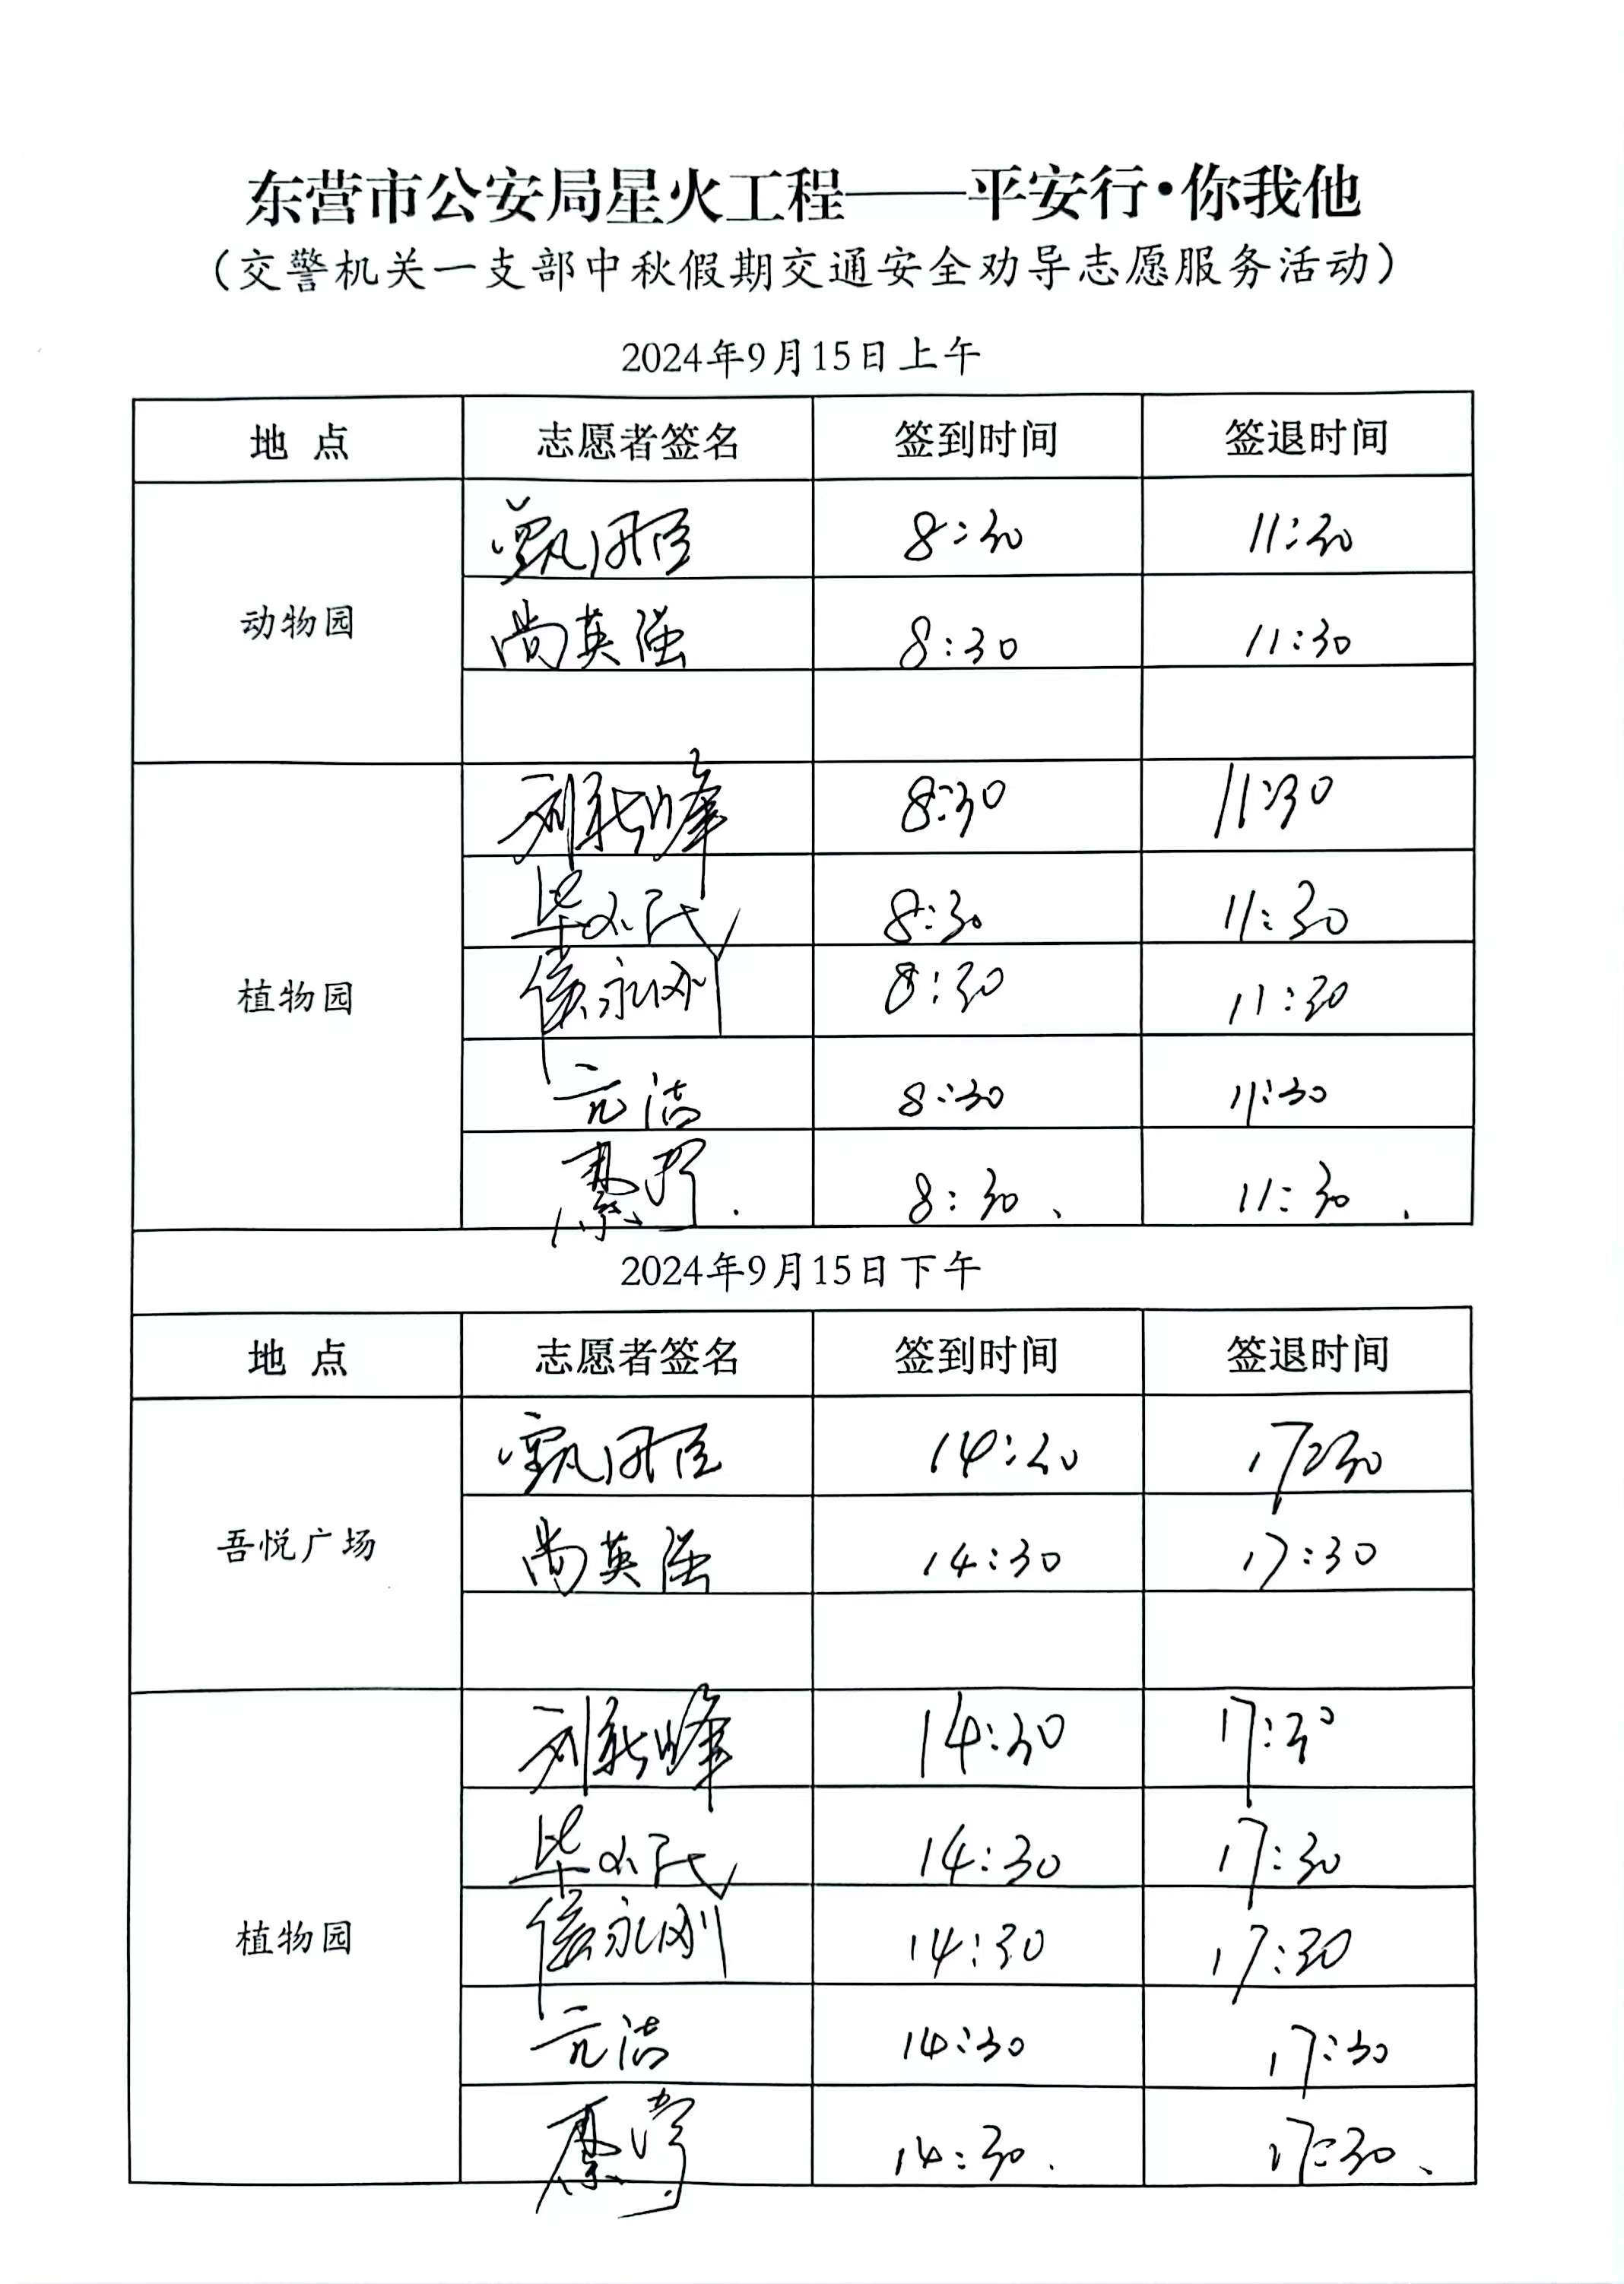 东营市公安局星火工程——平安行·你我他
（交警机关一支部中秋假期交通安全劝导志愿服务活动）
2024年9月15日上午
地 点 志愿者签名 签到时间 签退时间
8:30 11:30
动物园 尚英强 8:30 11:30
刘新峰 8:30 11:30
8:30 11:30
植物园 侯永刚 8:30 11:30
亓洁 8:30 11:30
8:30 11:30
2024年9月15日下午
地 点 志愿者签名 签到时间 签退时间
14:30 17:30
吾悦广场 尚英强 14:30 17:30
刘新峰 14:30 17:30
14:30 17:30
植物园 侯永刚 14:30 17:30
亓洁 14:30 17:30
14:30 17:30